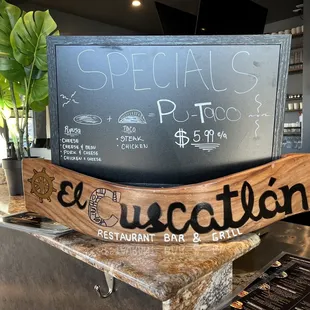 SPECIALS
Pupusa + TACO = Pu-Taco
• CHEESE
• CHEESE & BEAN
• PORK & CHEESE
• CHICKEN & CHEESE
• STEAK
• CHICKEN
$5.99
El Cuscatlán
RESTAURANT BAR & GRILL